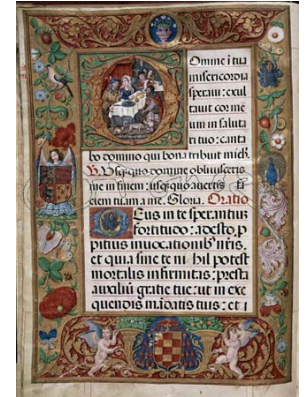 Domine i tua
misericordia
speraui: exul
tauit cor me
um in saluta
ri tuo: canta
bo domino qui bona tribuit michi.
V. Usq quo domine obliuisceris
me in finem: usq quo auertis fa
ciem tuam a me. Gloria. Oratio
Deus in te sperantiuz
fortitudo: adesto, p
pitius inuocationib nris.
et quia sine te nihil potest
mortalis infirmitas: presta
auxiliuz gratie tue: ut in exe
quendis madatis tuis: et i